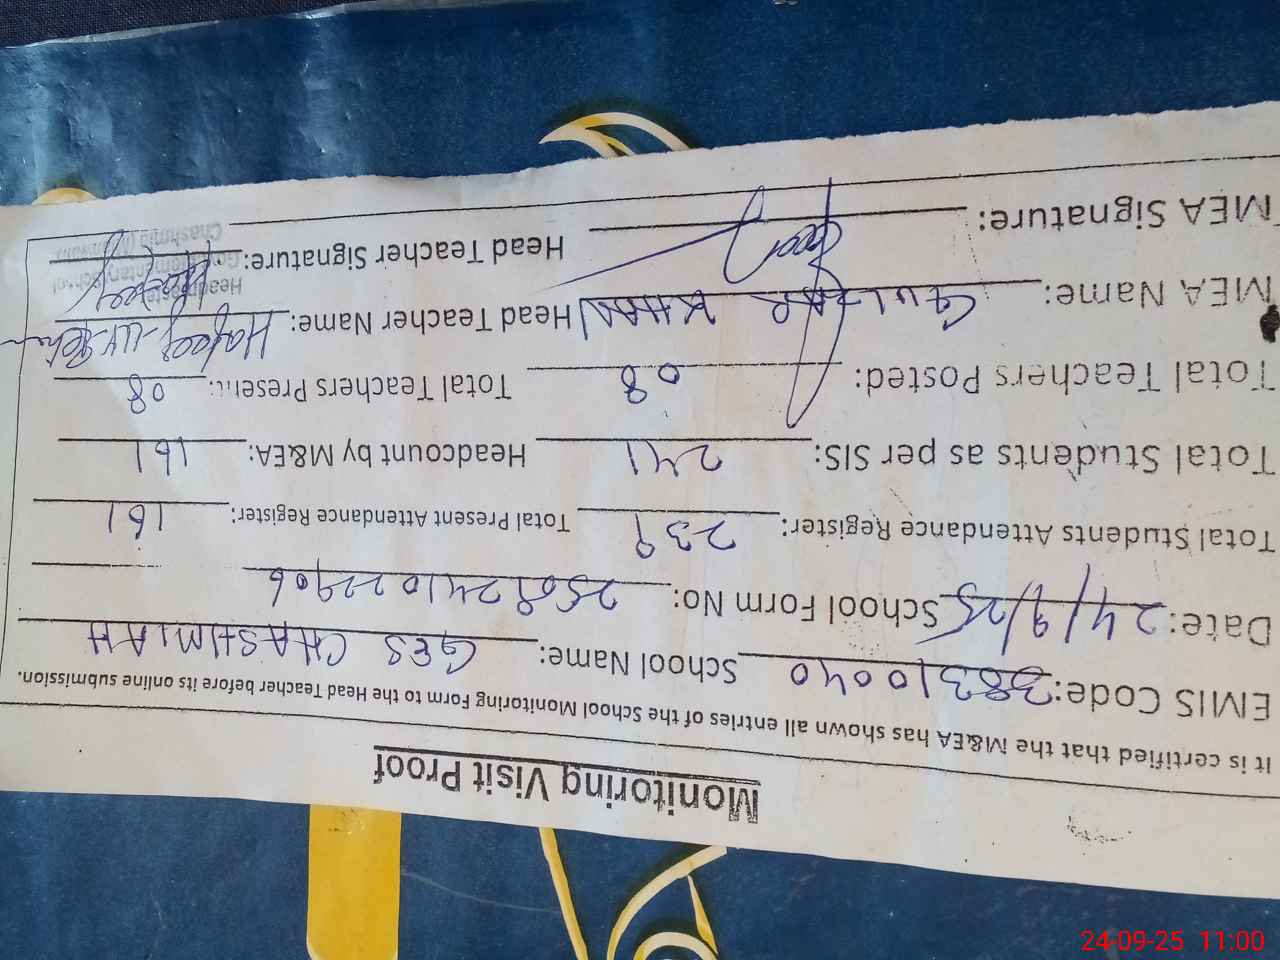 Monitoring Visit Proof
It is certified that the M&EA has shown all entries of the School Monitoring Form to the Head Teacher before its online submission.
EMIS Code: 38310040 School Name: GES CHASHMIAH
Date: 24/9/25 School Form No: 2509241022906
Total Students Attendance Register: 239 Total Present Attendance Register: 161
Total Students as per SIS: 241 Headcount by M&EA: 161
Total Teachers Posted: 08 Total Teachers Present: 08
MEA Name: GULZAR KHAN Head Teacher Name: Hafeez-ur-Rehman
MEA Signature: Head Teacher Signature:
Headmaster
Govt. Elementary School
Chashmia (Mianwali)
24-09-25 11:00